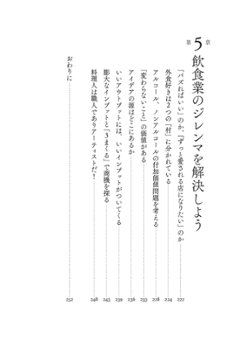 第5章 飲食業のジレンマを解決しよう
「バズればいい」のか、「ずっと愛される店になりたい」のか 222
外食好きは2つの「村」に分かれている 224
アルコール、ノンアルコールの付加価値問題を考える 228
「変わらないこと」の価値がある 233
アイデアの源はどこにあるか 236
いいアウトプットには、いいインプットがついてくる 239
膨大なインプットと「3まくる」で商機を探る 245
料理人は職人でありアーティストだ! 248
おわりに 252